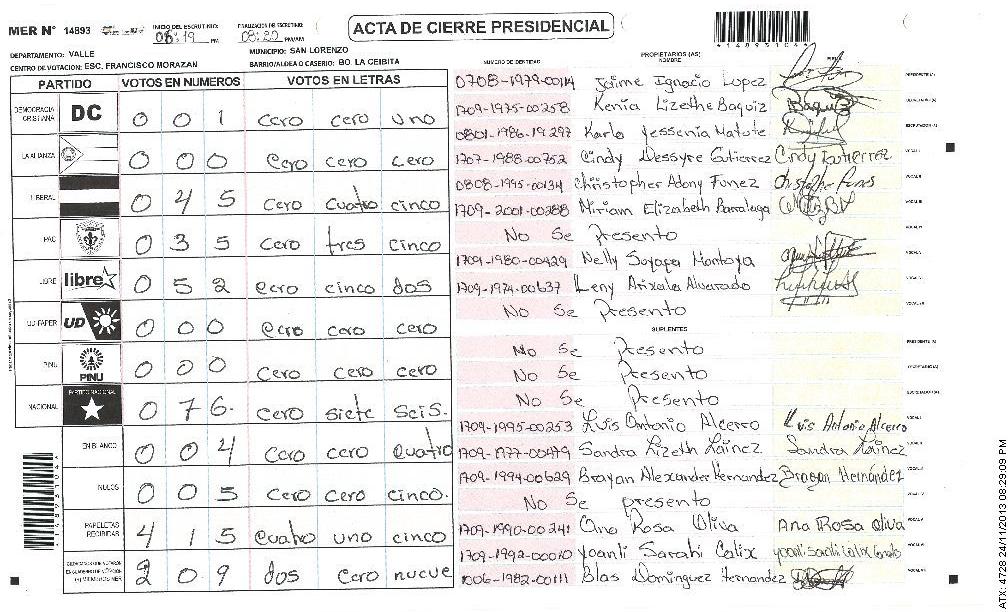 MER N° 14893
INICIO DEL ESCRUTINIO: 08:19 PM
FINALIZACION DE ESCRUTINIO: 08:29 PM/AM
ACTA DE CIERRE PRESIDENCIAL
1 4 8 9 3 1 0 4 4
DEPARTAMENTO: VALLE
MUNICIPIO: SAN LORENZO
CENTRO DE VOTACION: ESC. FRANCISCO MORAZAN
BARRIO/ALDEA O CASERIO: BO. LA CEIBITA
PARTIDO VOTOS EN NUMEROS VOTOS EN LETRAS
DEMOCRACIA CRISTIANA DC 0 0 1 cero cero uno
LA ALIANZA 0 0 0 cero cero cero
LIBERAL 0 4 5 cero cuatro cinco
PAC 0 3 5 cero tres cinco
LIBRE libre 0 5 2 cero cinco dos
UD-FAPER UD 0 0 0 cero cero cero
PINU PINU 0 0 0 cero cero cero
NACIONAL PARTIDO NACIONAL 0 7 6. cero siete seis.
EN BLANCO 0 0 4 cero cero cuatro
NULOS 0 0 5 cero cero cinco.
PAPELETAS RECIBIDAS 4 1 5 cuatro uno cinco
2 0 9 dos cero nueve
NUMERO DE IDENTIDAD PROPIETARIOS (AS) NOMBRE FIRMA
0708-1979-00114 Jaime Ignacio Lopez PRESIDENTE (A)
1709-1975-00258 Kenia Lizethe Baquiz Baquiz SECRETARIO (A)
0801-1986-19297 Karla Jessenia Matute ESCRUTADOR (A)
1707-1988-00752 Cindy Dessyre Gutierrez Cindy Gutierrez VOCAL I
0808-1995-00134 Christopher Adony Funez Christopher Funes VOCAL II
1709-2001-00288 Miriam Elizabeth Barralaga VOCAL III
No Se presento VOCAL IV
1709-1980-00429 Nelly Soyapa Montoya VOCAL V
1709-1974-00637 Leny Arixela Alvarado
No Se presento
SUPLENTES
No Se presento PRESIDENTE (A)
No Se presento SECRETARIO (A)
No Se presento ESCRUTADOR (A)
1709-1995-00253 Luis Antonio Alcerro Luis Antonio Alcerro VOCAL I
1709-1977-00479 Sandra Lizeth Laínez Sandra Laínez
1709-1994-00629 Brayan Alexander Hernandez Brayan Hernández
No Se presento
1709-1990-00241 Ana Rosa Oliva Ana Rosa Oliva
1709-1992-00010 Yoanli Sarahi Calix
1006-1982-00111 Blas Dominguez Hernandez
ATX: 4728 24/11/2013 08:29:09 PM